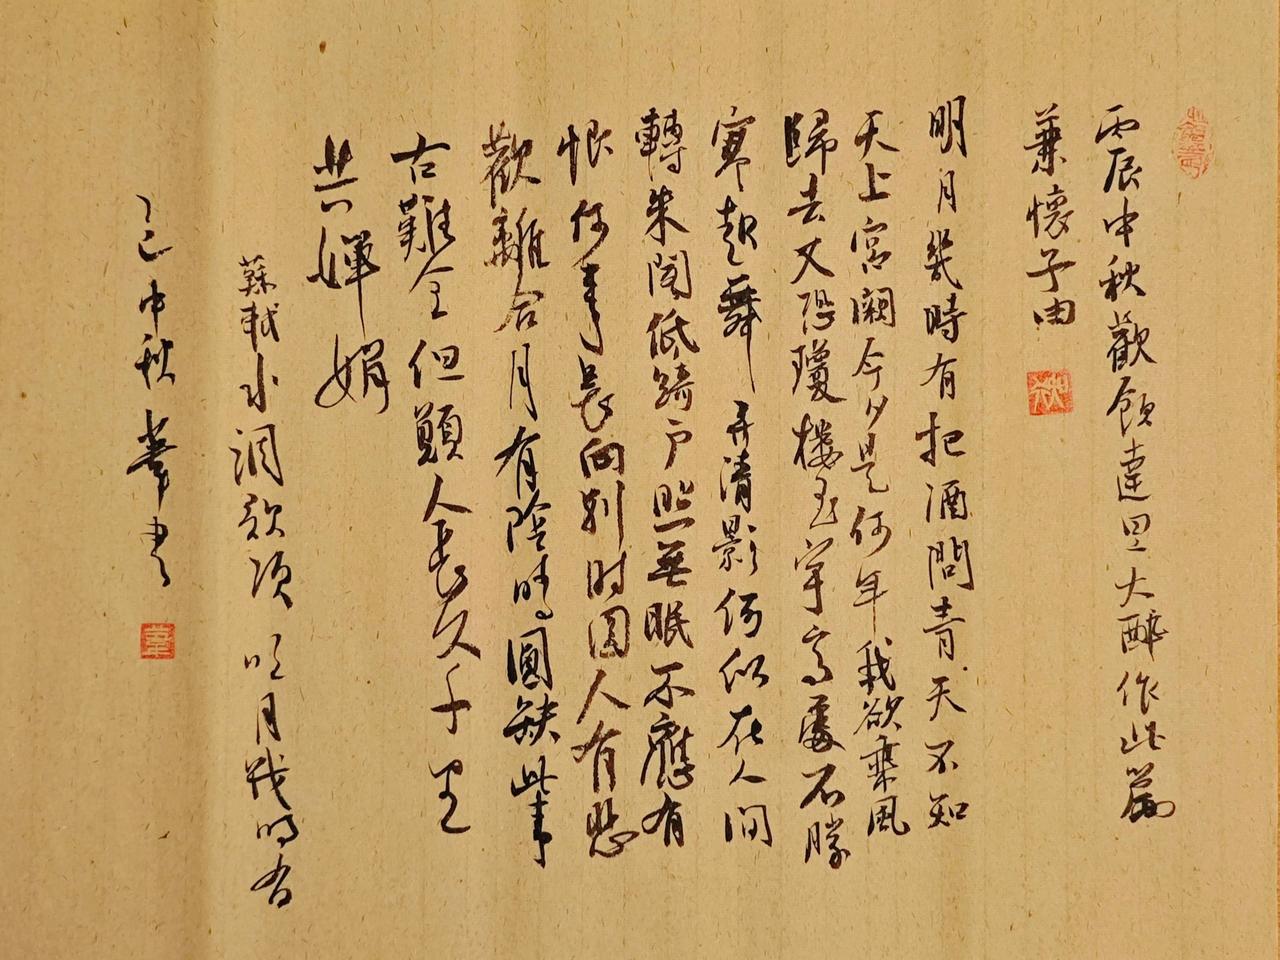 丙辰中秋歡飲達旦大醉作此篇
兼懷子由
明月幾時有把酒問青天不知
天上宮闕今夕是何年我欲乘風
歸去又恐瓊樓玉宇高處不勝
寒起舞弄清影何似在人間
轉朱閣低綺戶照無眠不應有
恨何事長向別时圓人有悲
歡離合月有陰晴圓缺此事
古難全但願人長久千里
共嬋娟
蘇軾水調歌頭明月幾時有
乙巳中秋書